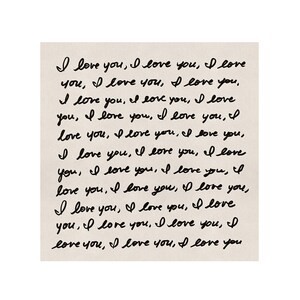 I love you, I love you, I love
you, I love you, I love you,
I love you, I love you, I love
you, I love you, I love you, I
love you, I love you, I love you,
I love you, I love you, I love
you, I love you, I love you, I
love you, I love you, I love you,
I love you, I love you, I love
you, I love you, I love you, I
love you, I love you, I love you